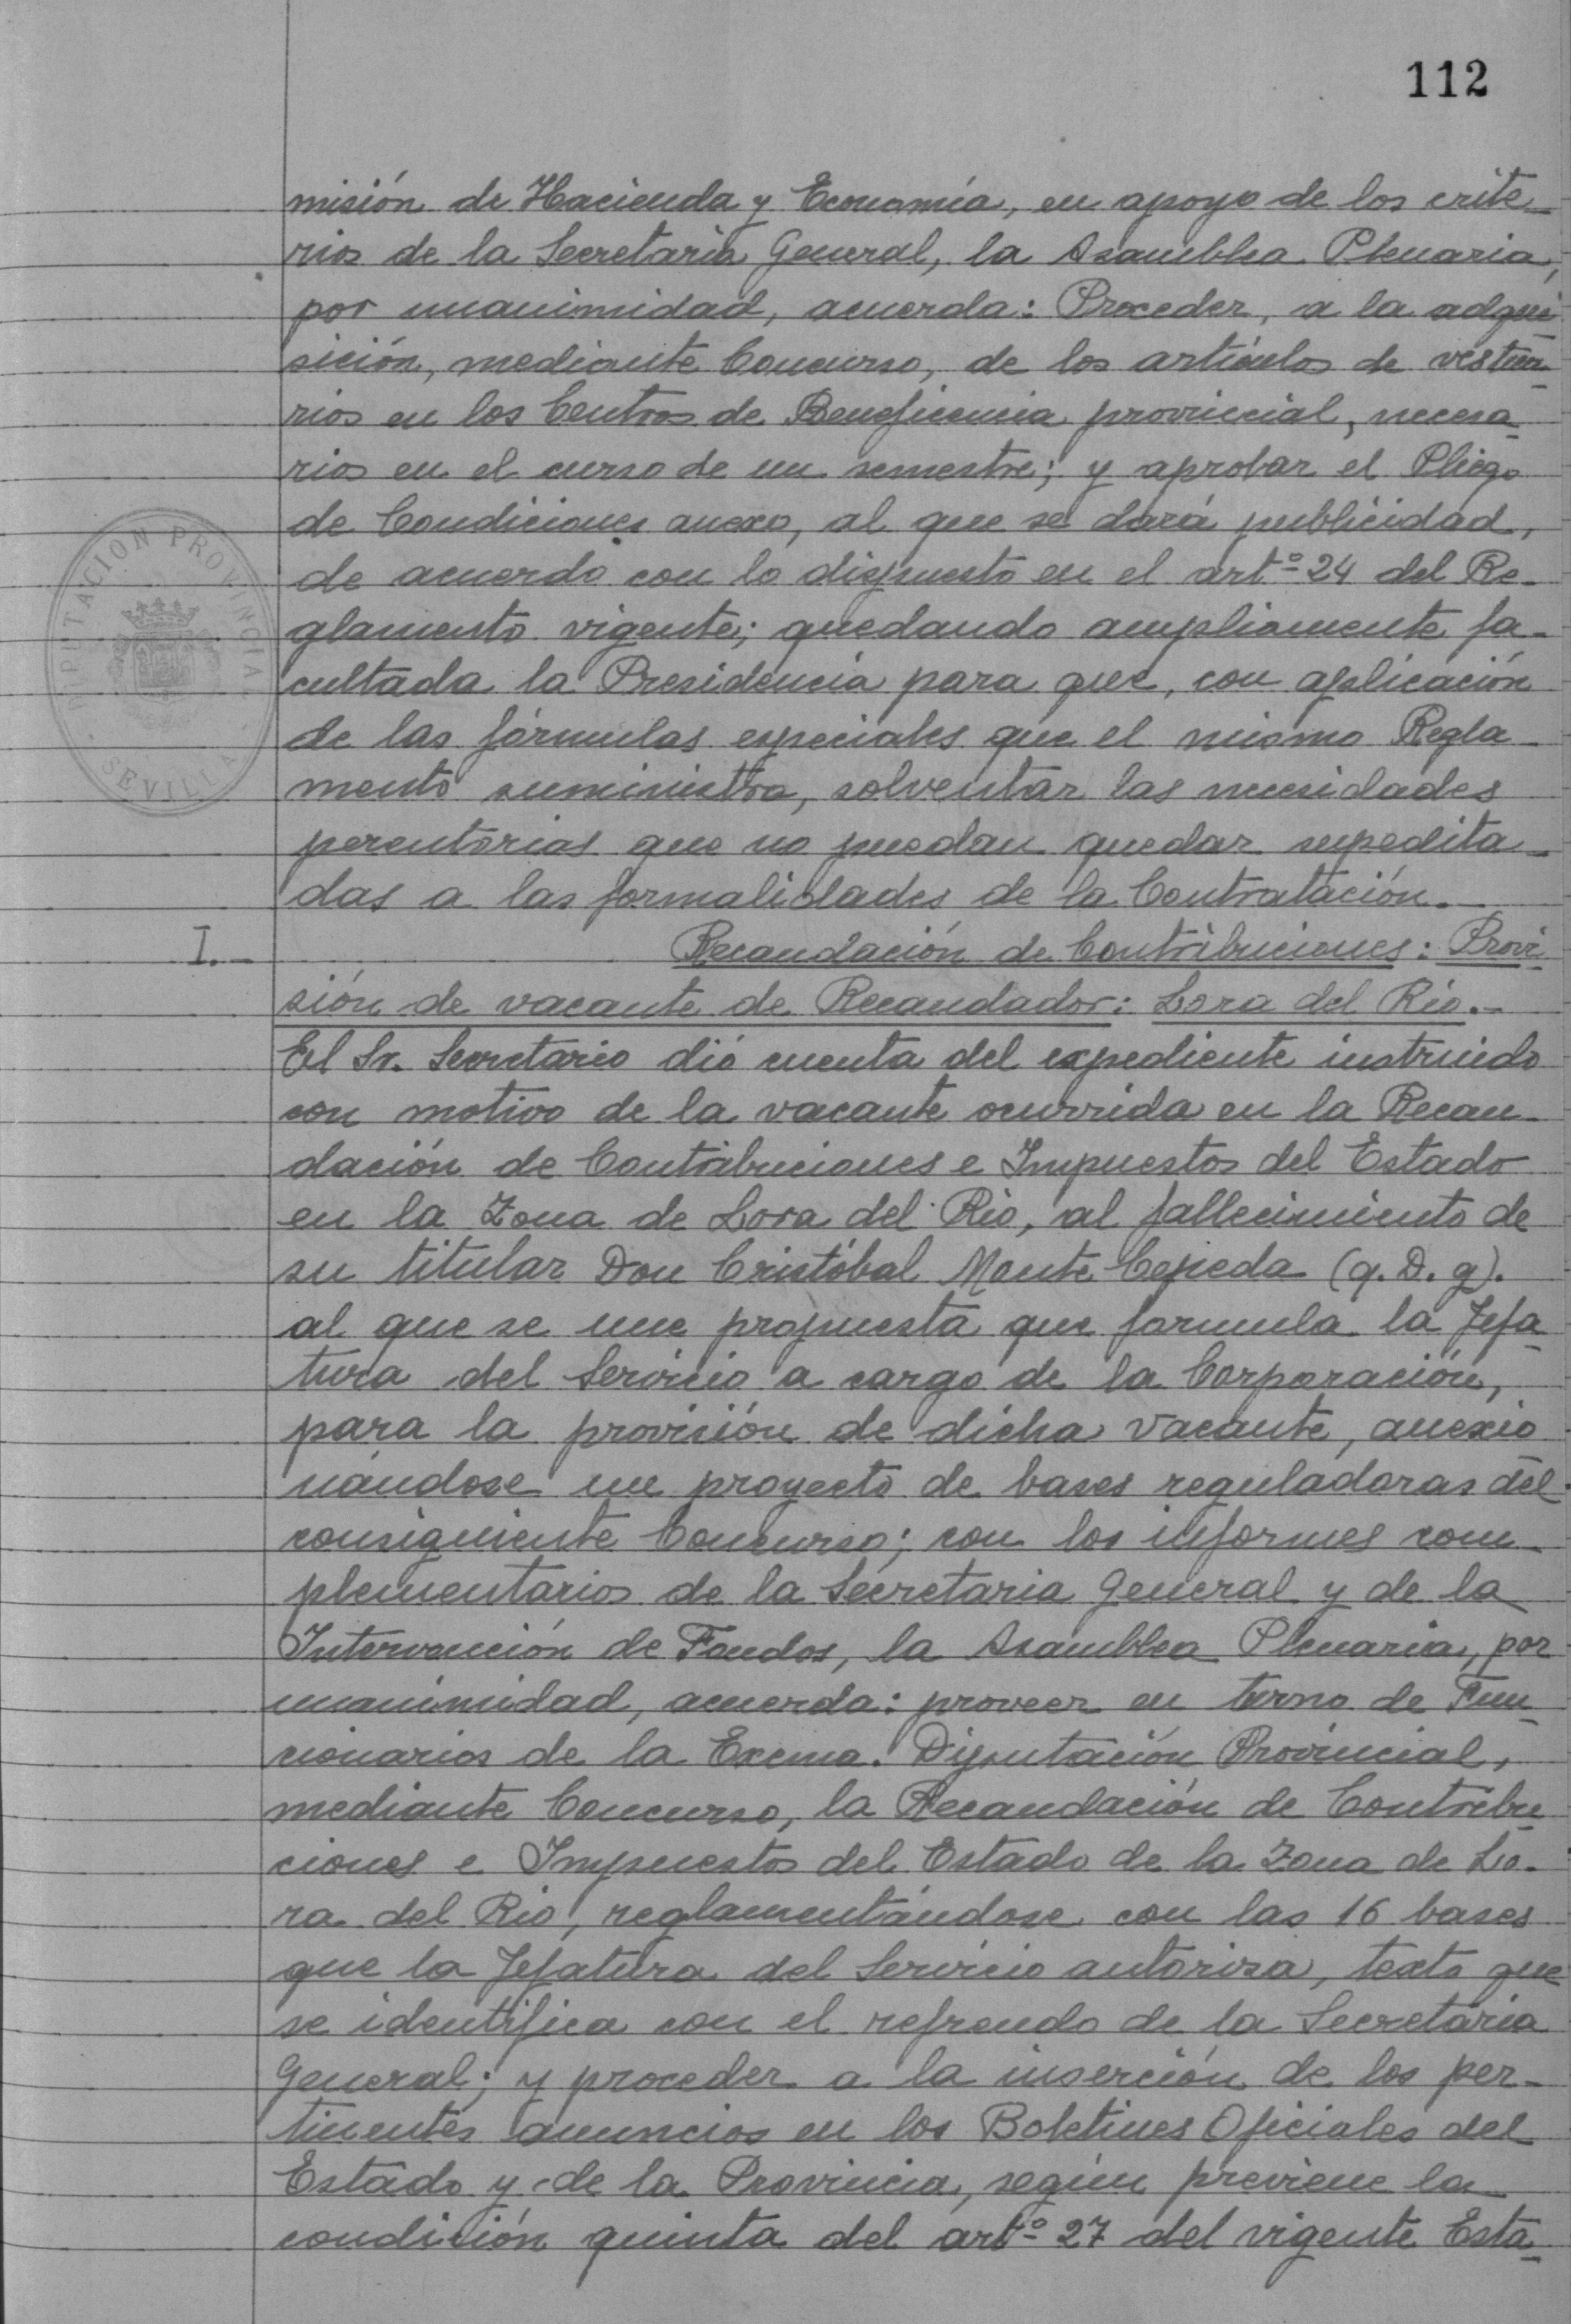 112
misión de Hacienda y Economía, en apoyo de los crite-
rios de la Secretaria General, la Asamblea Plenaria,
por unanimidad, acuerda: Proceder, a la adqui-
sición, mediante Concurso, de los artículos de vestua-
rios en los Centros de Beneficencia provincial, necesa-
rios en el curso de un semestre; y aprobar el Pliego
de Condiciones anexo, al que se dará publicidad,
de acuerdo con lo dispuesto en el artº 24 del Re-
glamento vigente; quedando ampliamente fa-
cultada la Presidencia para que, con aplicación
de las fórmulas especiales que el mismo Regla-
mento suministra, solventar las necesidades
perentorias que no puedan quedar supedita-
das a las formalidades de la Contratación.-
DIPUTACION PROVINCIAL
- SEVILLA -
I.- Recaudación de Contribuciones: Provi-
sión de vacante de Recaudador: Lora del Río.-
El Sr. Secretario dió cuenta del expediente instruido
con motivo de la vacante ocurrida en la Recau-
dación de Contribuciones e Impuestos del Estado
en la Zona de Lora del Rio, al fallecimiento de
su titular Don Cristóbal Monte Cepeda (q. D. g).
al que se une propuesta que formula la Jefa-
tura del Servicio a cargo de la Corporación,
para la provisión de dicha vacante, anexio-
nándose un proyecto de bases reguladoras del
consiguiente Concurso; con los informes com-
plementarios de la Secretaria General y de la
Intervención de Fondos, la Asamblea Plenaria, por
unanimidad, acuerda: proveer en turno de Fun-
cionarios de la Excma. Diputación Provincial,
mediante Concurso, la Recaudación de Contribu-
ciones e Impuestos del Estado de la Zona de Lo-
ra del Rio, reglamentándose con las 16 bases
que la Jefatura del Servicio autoriza, texto que
se identifica con el refrendo de la Secretaria
General; y proceder a la inserción de los per-
tinentes anuncios en los Boletines Oficiales del
Estado y de la Provincia, según previene la
condición quinta del artº 27 del vigente Esta-